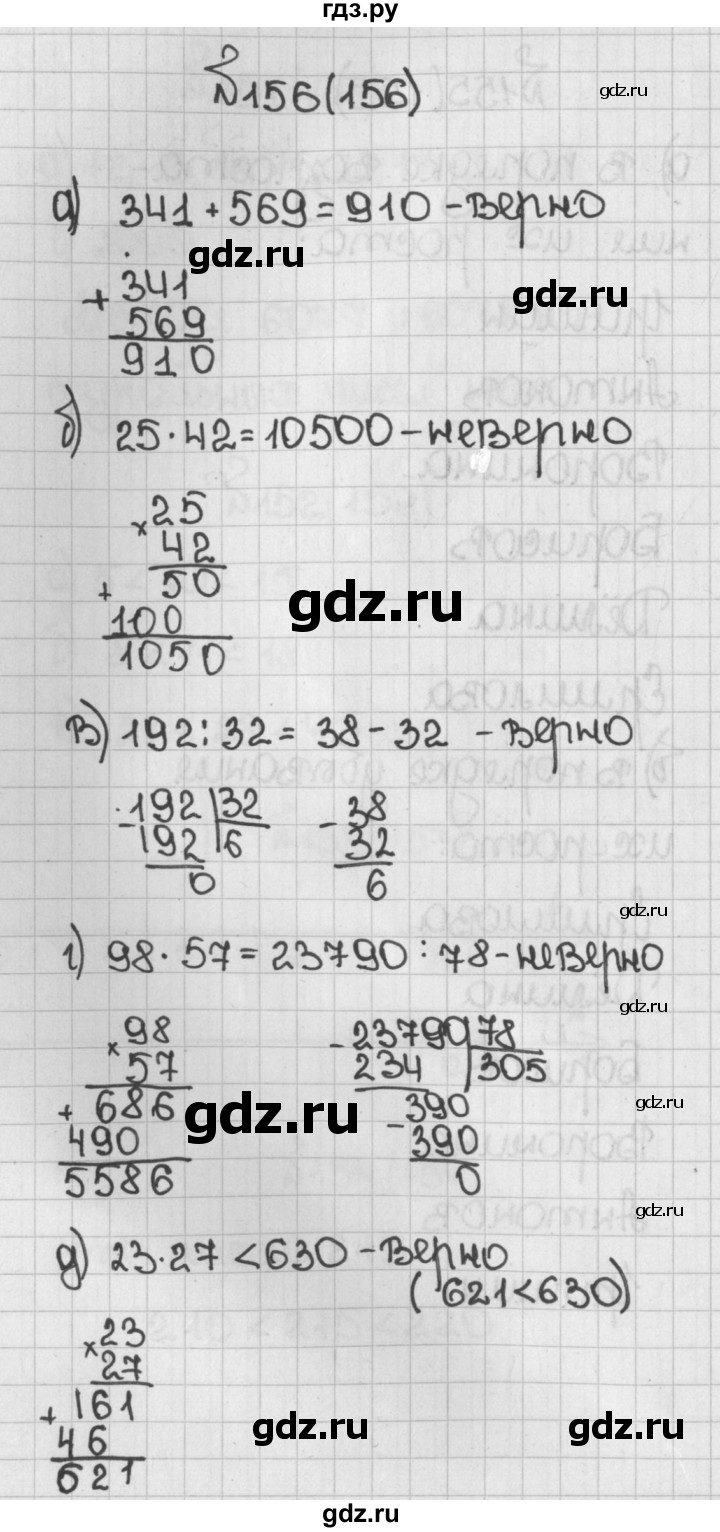 гдз.ру
№156(156)
gdz.ru
а) 341 + 569 = 910 - верно
gdz.ru
gdz.ru
+ 341
569
910
б) 25 · 42 = 10500 - неверно
× 25
42
+ 50
100
1050
gdz.ru
в) 192 : 32 = 38 - 32 - верно
- 192 | 32
192 | 6
0
- 38
32
6
gdz.ru
г) 98 · 57 = 23790 : 78 - неверно
gdz.ru
× 98
57
+ 686
490
5586
- 23790 | 78
234 | 305
- 390
390
0
gdz.ru
gdz.ru
gdz.ru
д) 23 · 27 < 630 - верно
( 621 < 630 )
× 23
27
+ 161
46
621
gdz.ru
gdz.ru
gdz.ru